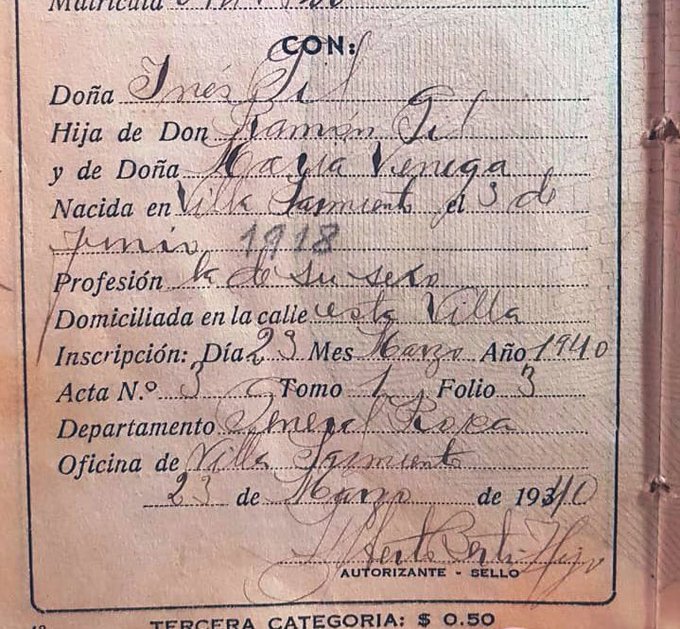 Matrícula
CON:
Doña Inés Gil
Hija de Don Ramón Gil
y de Doña María Venega
Nacida en Villa Sarmiento el 3 de
Junio 1918
Profesión la de su sexo
Domiciliada en la calle esta Villa
Inscripción: Día 23 Mes Marzo Año 1940
Acta N.º 3 Tomo 1 Folio 3
Departamento General Roca
Oficina de Villa Sarmiento
23 de Marzo de 1940
AUTORIZANTE - SELLO
TERCERA CATEGORIA: $ 0.50